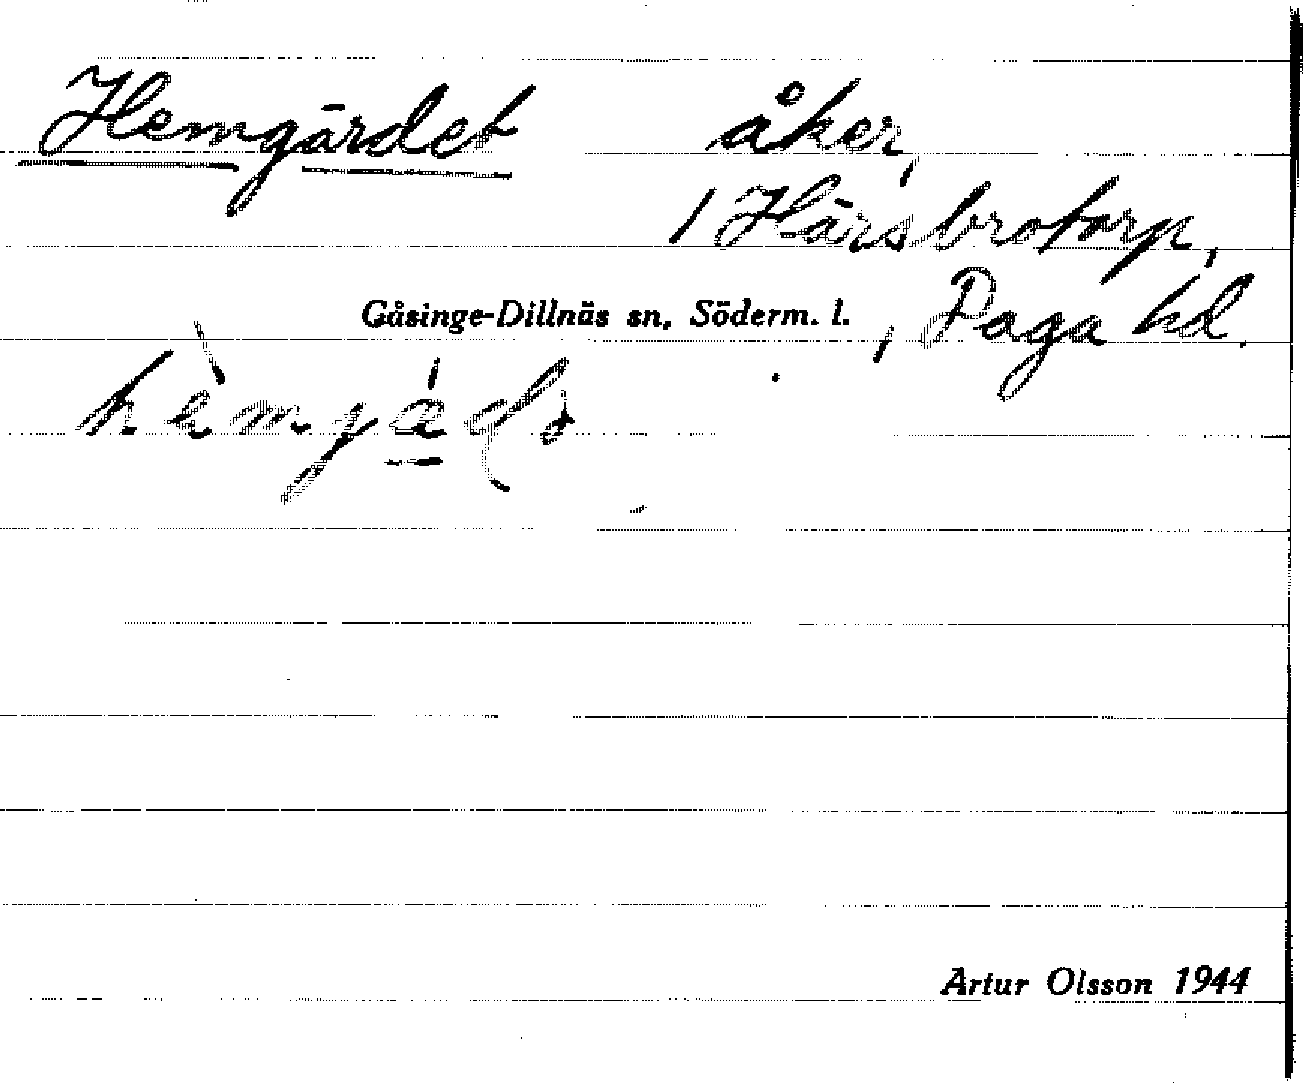 Hemgärdet åker,
/ Härsbrotorp,
Gåsinge-Dillnäs sn, Söderm. l. , Daga hd.
Artur Olsson 1944